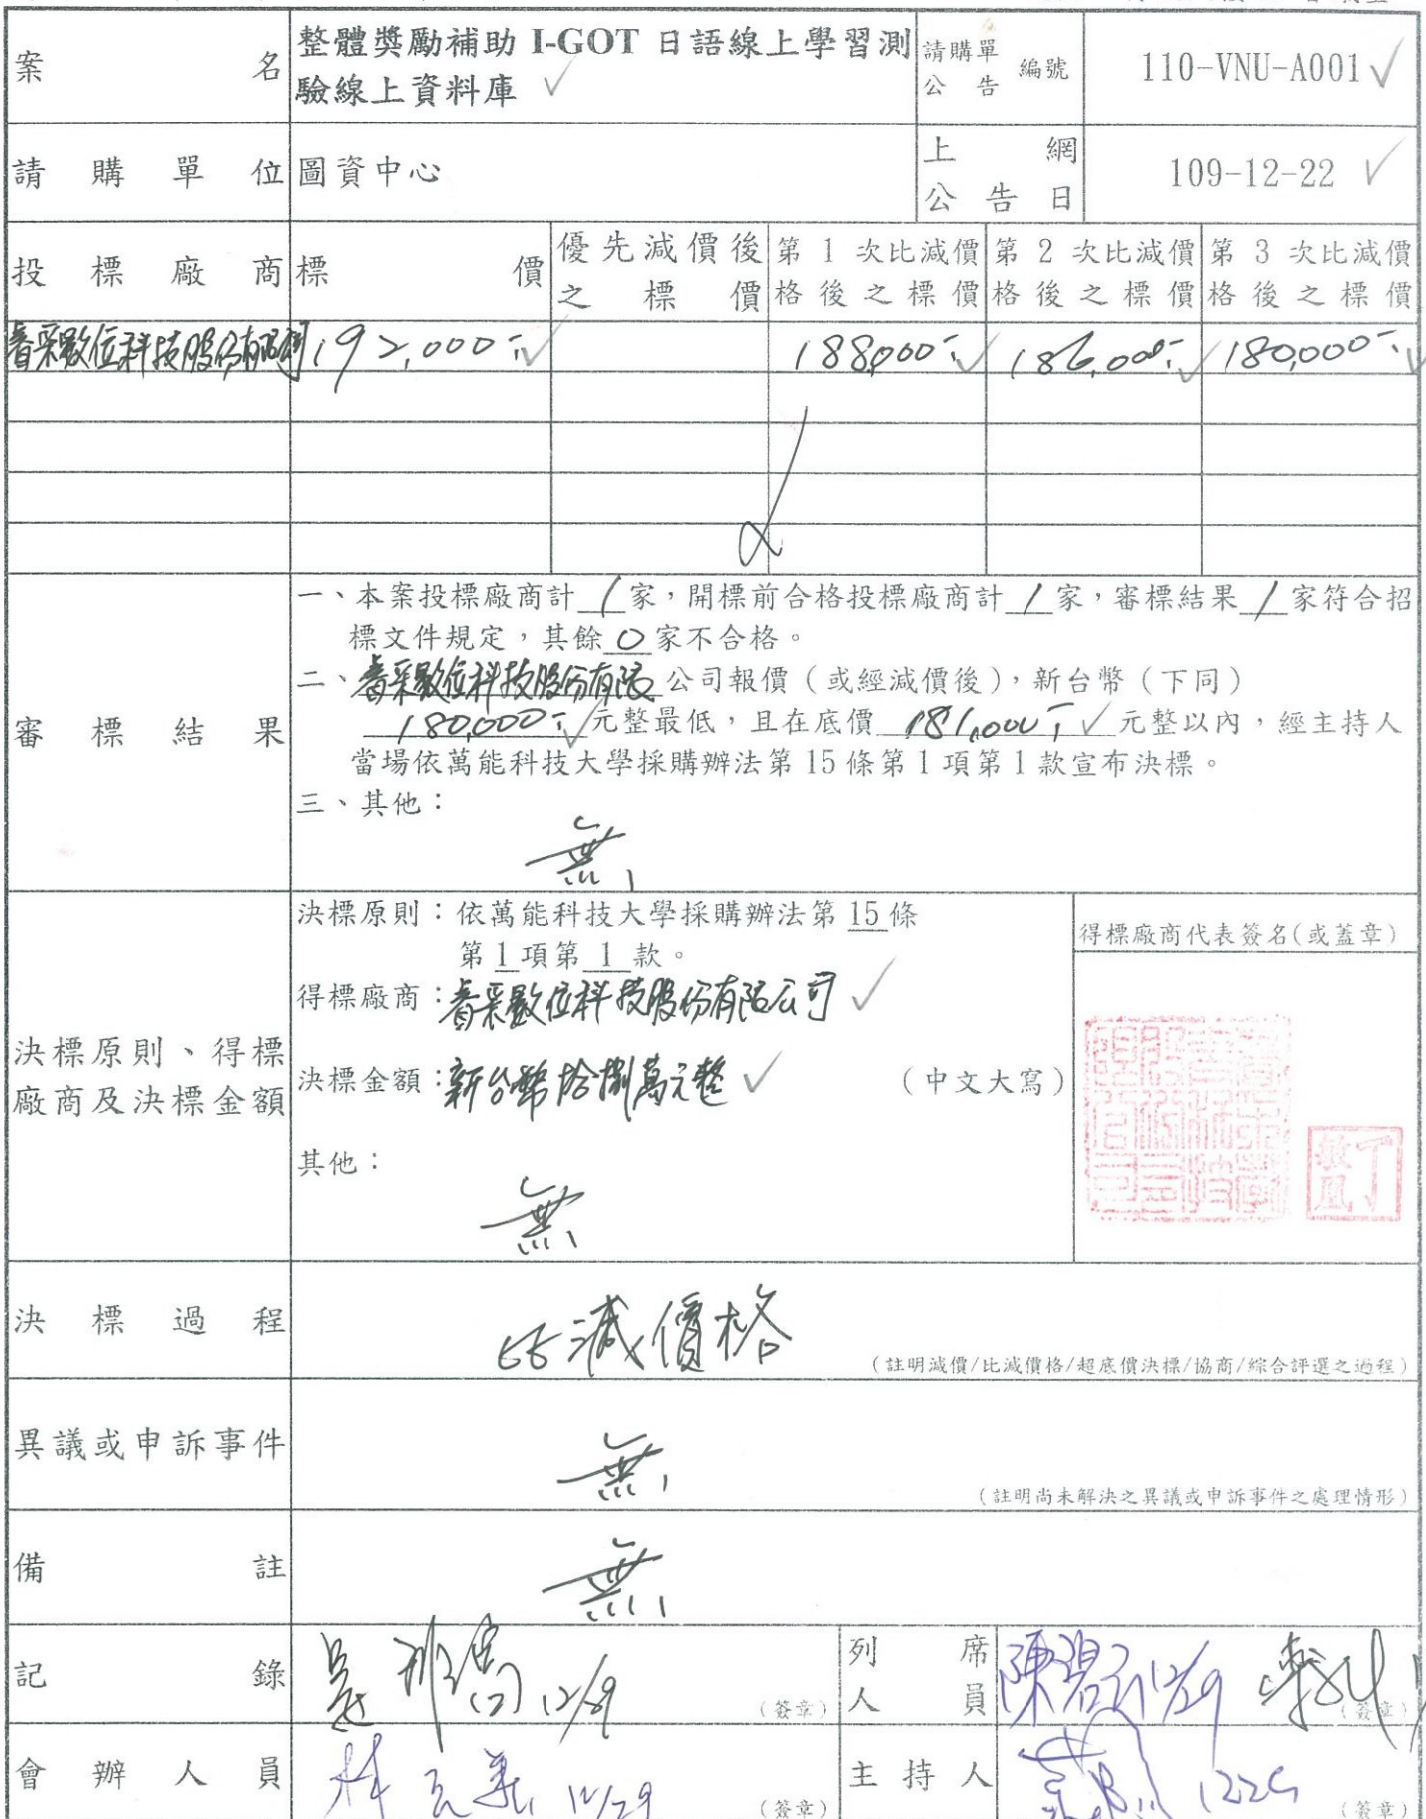 案名
整體獎勵補助 I-GOT 日語線上學習測
驗線上資料庫
請購單
公告
編號
110-VNU-A001
請購單位
圖資中心
上網
公告日
109-12-22
投標廠商
標價
優先減價後
之標價
第 1 次比減價
格後之標價
第 2 次比減價
格後之標價
第 3 次比減價
格後之標價
睿采數位科技股份有限公司
192,000
188,000
186,000
180,000
審標結果
一、本案投標廠商計 1 家，開標前合格投標廠商計 1 家，審標結果 1 家符合招
標文件規定，其餘 0 家不合格。
二、睿采數位科技股份有限 公司報價（或經減價後），新台幣（下同）
180,000 元整最低，且在底價 181,000 元整以內，經主持人
當場依萬能科技大學採購辦法第 15 條第 1 項第 1 款宣布決標。
三、其他：
無
決標原則、得標
廠商及決標金額
決標原則：依萬能科技大學採購辦法第 15 條
第 1 項第 1 款。
得標廠商：睿采數位科技股份有限公司
決標金額：新台幣拾捌萬元整
（中文大寫）
其他：
無
得標廠商代表簽名(或蓋章)
丁敏鳳
決標過程
比減價格
（註明減價/比減價格/超底價決標/協商/綜合評選之過程）
異議或申訴事件
無
（註明尚未解決之異議或申訴事件之處理情形）
備註
無
記錄
12/29
（簽章）
列席
人員
陳碧 12/29
（簽章）
會辦人員
12/29
（簽章）
主持人
1229
（簽章）